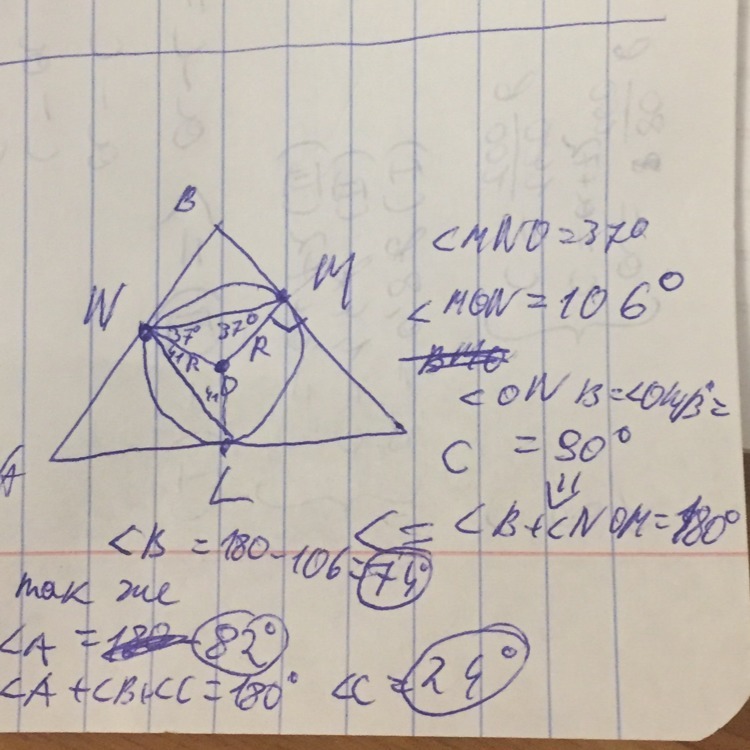 B
N
M
37°
37°
41
R
R
41
O
A
L
C
∠MNO=37°
∠MON=106°
∠ONB=∠OMB=
=90°
∠B+∠NOM=180°
∠B=180-106=74°
так же
∠A=
82°
∠A+∠B+∠C=180°
∠C=24°